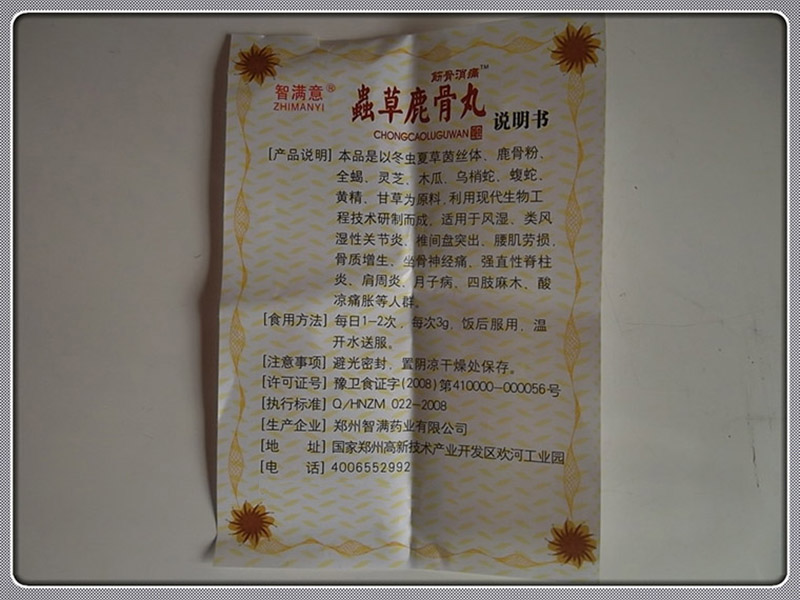 智满意®
ZHIMANYI
筋骨消痛™
蟲草鹿骨丸 说明书
CHONGCAOLUGUWAN
[产品说明] 本品是以冬虫夏草菌丝体、鹿骨粉、
全蝎、灵芝、木瓜、乌梢蛇、蝮蛇、
黄精、甘草为原料,利用现代生物工
程技术研制而成,适用于风湿、类风
湿性关节炎、椎间盘突出、腰肌劳损、
骨质增生、坐骨神经痛、强直性脊柱
炎、肩周炎、月子病、四肢麻木、酸
凉痛胀等人群。
[食用方法] 每日1-2次,每次3g,饭后服用,温
开水送服。
[注意事项] 避光密封,置阴凉干燥处保存。
[许可证号] 豫卫食证字(2008)第410000-000056号
[执行标准] Q/HNZM 022-2008
[生产企业] 郑州智满药业有限公司
[地 址] 国家郑州高新技术产业开发区欢河工业园
[电 话] 4006552992